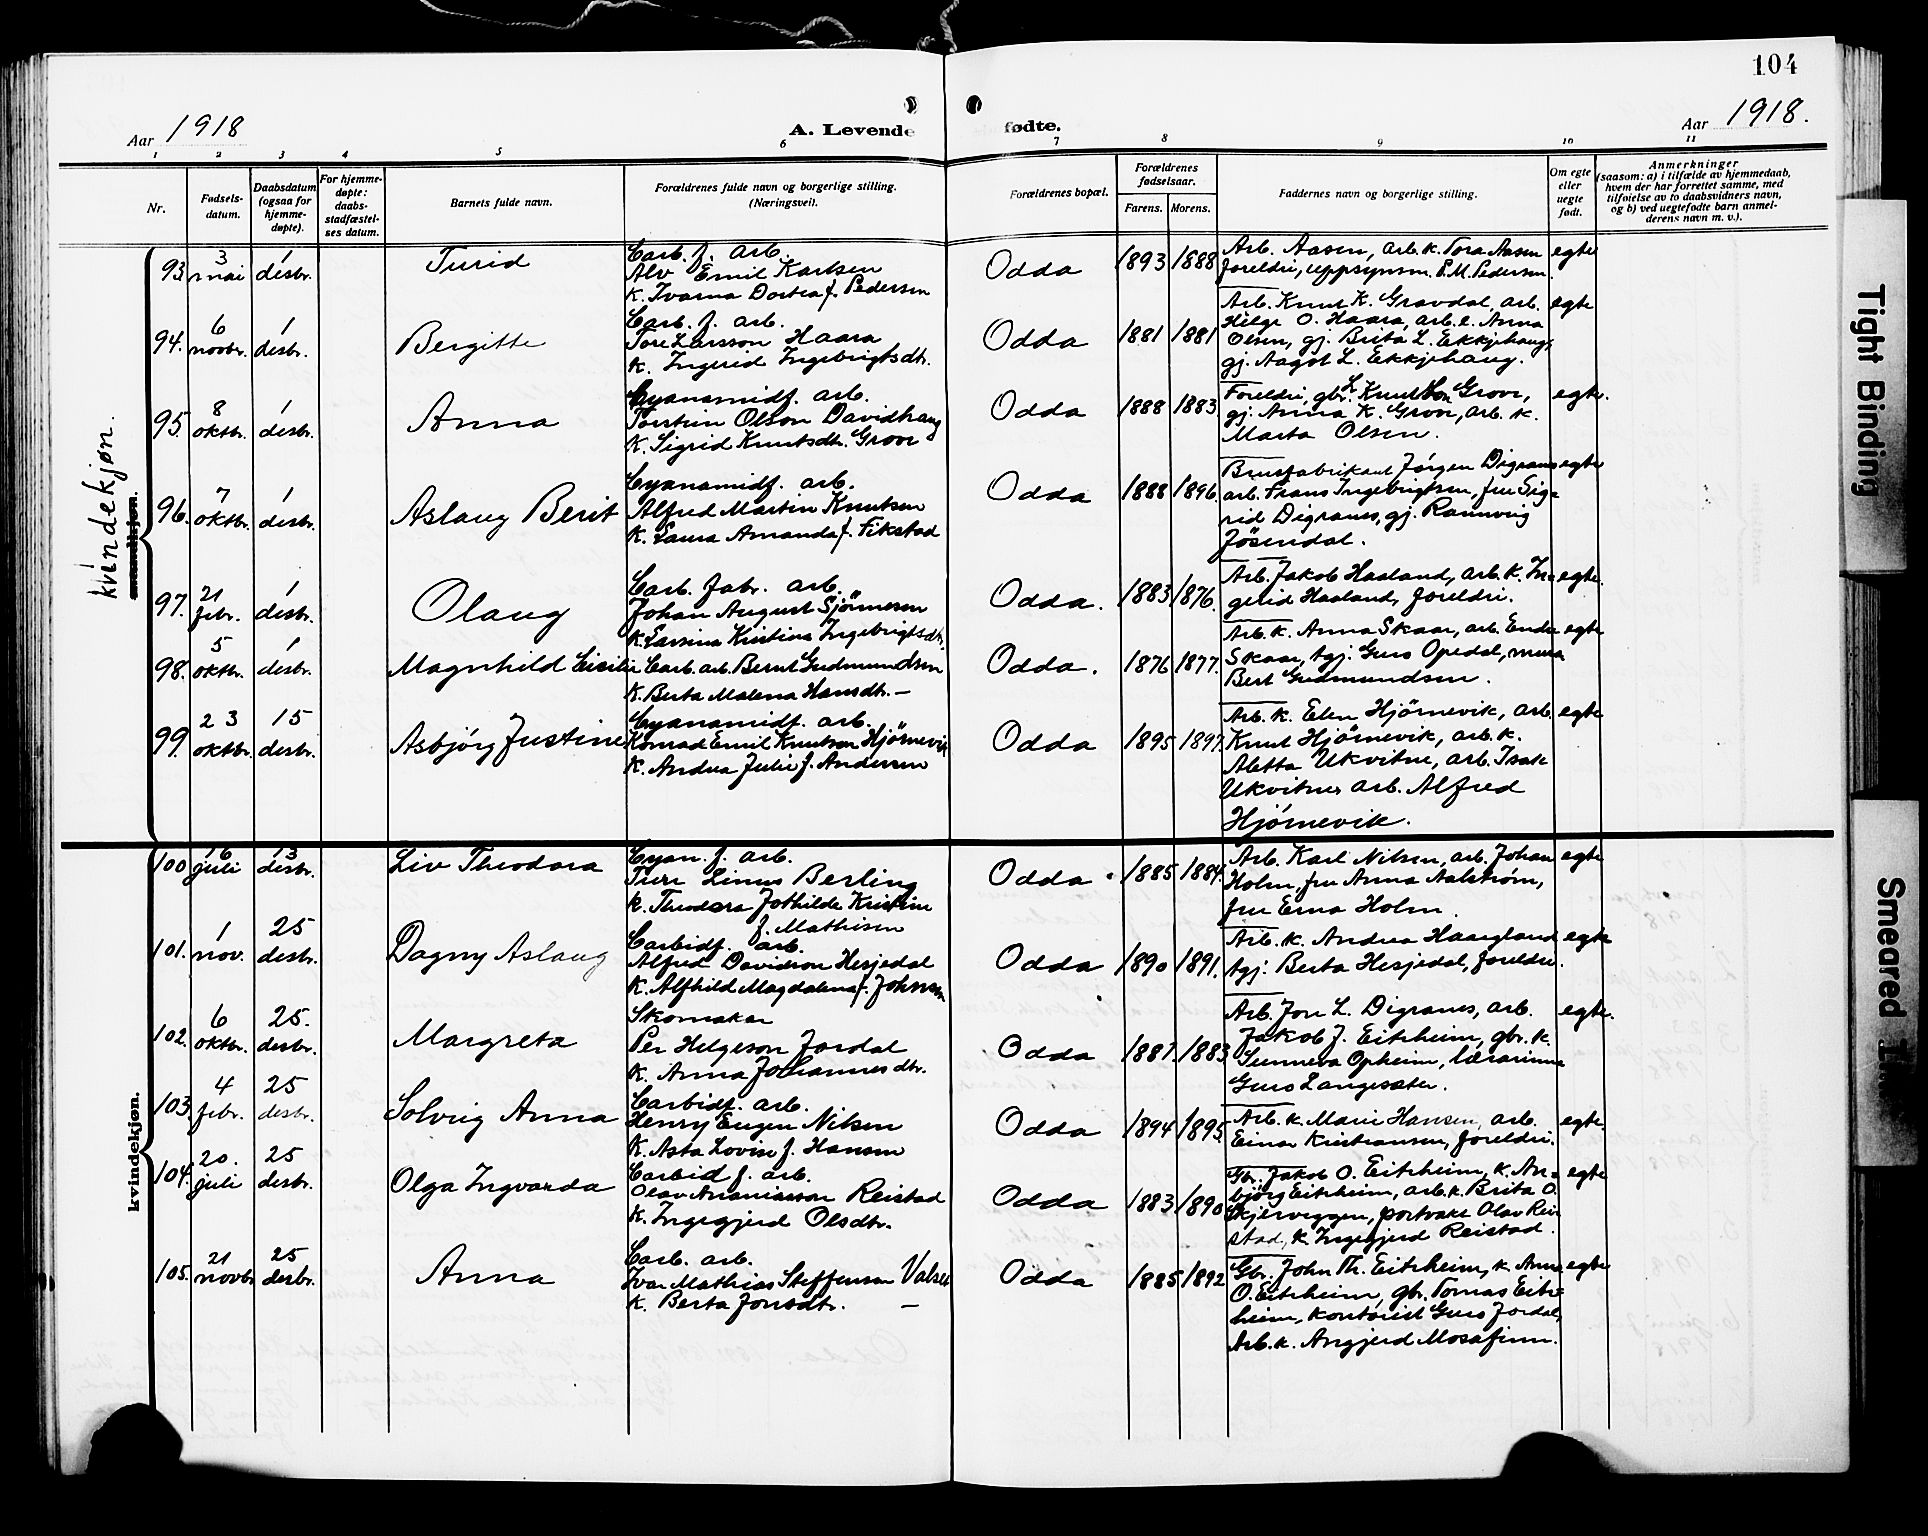 104
Aar 1918
A. Levende
fødte.
Aar 1918.
1 2 3 4 5 6 7 8 9 10 11
Nr.
Fødsels-
datum.
Daabsdatum
(ogsaa for
hjemme-
døpte).
For hjemme-
døpte:
daabs-
stadfæstel-
ses datum.
Barnets fulde navn.
Forældrenes fulde navn og borgerlige stilling.
(Næringsvei).
Forældrenes bopæl.
Forældrenes
fødselsaar.
Farens. Morens.
Faddernes navn og borgerlige stilling.
Om egte
eller
uegte
født.
Anmerkninger
(saasom: a) i tilfælde av hjemmedaab,
hvem der har forrettet samme, med
tilføielse av to daabsvidners navn,
og b) ved uegtefødte barn anmel-
derens navn m. v.).
kvindekjøn.
mandkjøn.
93 3 mai 1 desbr. Turid
Carb. f. arb.
Alv Emil Karlsen
K. Ivarna Dortea f. Pedersen
Odda 1893 1888
Arb. Aasen, arb. k. Tora Aasen
foreldri, uppsynsm. P.M. Pedersen.
egte
94. 6 novbr. 1 desbr. Bergitte
Carb. f. arb.
Tore Larsson Haara
K. Ingerid Ingebrigtsdtr.
Odda 1881 1881
Arb. Knut K. Gravdal, arb.
Helge O. Haara, arb. e. Anna
Olsen, gj. Brita L. Ekkjehaug,
gj. Aagot L. Ekkjehaug.
egte
95. 8 oktbr. 1 desbr. Anna
Cyanamidf. arb.
Torstein Olson Davidhaug
K. Sigrid Knutsdtr. Grovr
Odda 1888 1883
Foreldri, gbr. L. Knutson Grovr,
gj. Anna K. Grovr, arb. k.
Marta Olsen.
egte.
96. 7 oktbr. 1 desbr. Aslaug Berit
Cyanamidf. arb.
Alfred Martin Knutsen
K. Laura Amanda f. Fikstad
Odda 1888 1896
Brusfabrikant Jørgen Digranes
arb. Frans Ingebrigtsen, fru Sig-
rid Digranes, gj. Rannveig
Jösendal.
egte
97. 21 febr. 1 desbr. Olaug
Carb. fabr. arb.
Johan August Sjönnesen
K. Larsina Kristina Ingebrigtsdtr.
Odda. 1883 1876.
Arb. Jakob Haaland, arb. k. In-
gerid Haaland, foreldri.
egte.
98. 5 oktbr. 1 desbr. Magnhild Cicilie
Carb. arb. Bernt Gudmundsen
K. Berta Malena Hansdtr. —
Odda. 1876 1877.
Arb. k. Anna Skaar, arb. Endre
Skaar, tgj. Guro Opedal,
Bert Gudmundsen.
egte
99. 23 oktbr. 15 desbr. Asbjörg Justine
Cyanamidf. arb.
Konrad Emil Knutsen Hjörnevik
K. Andrea Julie f. Andersen
Odda 1895 1897.
Arb. k. Elen Hjörnevik, arb.
Knut Hjörnevik, arb. k.
Aletta Ukvitne, arb. Isak
Ukvitnes arb. Alfred
Hjörnevik.
egte
100 16 juli 13 desbr. Liv Theodora
Cyan. f. arb.
Ture Linus Berling
K. Theodora Jothilde Kristine
f. Mathisen
Odda 1885 1884.
Arb. Karl Nilsen, arb. Johan
Holm, fru Anna Aalström,
fru Erna Holm.
egte
101. 1 nov. 25 desbr. Dagny Aslaug
Carbidf. arb.
Alfred Davidson Hesjedal
K. Alfhild Magdalena f. Johnsen
Odda 1890 1891.
Arb. k. Andrea Haaugland
tgj. Berta Hesjedal, foreldri.
egte
102. 6 oktbr. 25. desbr. Margreta
Skomakar
Per Helgeson Jordal
K. Anna Johannesdtr.
Odda 1887. 1883
Arb. Jon L. Digranes, arb.
Jakob J. Eitrheim, gbr. k.
Sunneva Opheim, lærarinna
Guro Langesæter.
egte.
103. 4 febr. 25 desbr. Solveig Anna
Carbidf. arb.
Henry Eugen Nilsen
K. Asta Lovise f. Hansen
Odda 1894 1895
Arb. k. Marie Hansen, arb.
Einar Kristiansen, foreldri.
egte.
kvindekjøn.
104. 20. juli 25 desbr. Olga Ingvarda
Carbid f. arb.
Olav Ananiasson Reistad
K. Ingegjerd Olsdtr.
Odda 1883 1890
Gbr. Jakob O. Eitrheim, k. An-
björg Eitrheim, arb. k. Brita O.
Skjerveggen, portvakt Olav Rei-
stad, k. Ingegjerd Reistad.
egte
105. 21 novbr. 25 desbr. Anna
Carb. arb.
Ivar Mathias Steffenson Valset
K. Berta Jonsdtr. —
Odda 1885 1892
Gbr. John Th. Eitrheim, k. Anna
O. Eitrheim, gbr. Tomas Eitr-
heim, kontorist Guro Jordal,
Arb. k. Angjerd Mosafinn.
egte
Tight Binding
Smeared